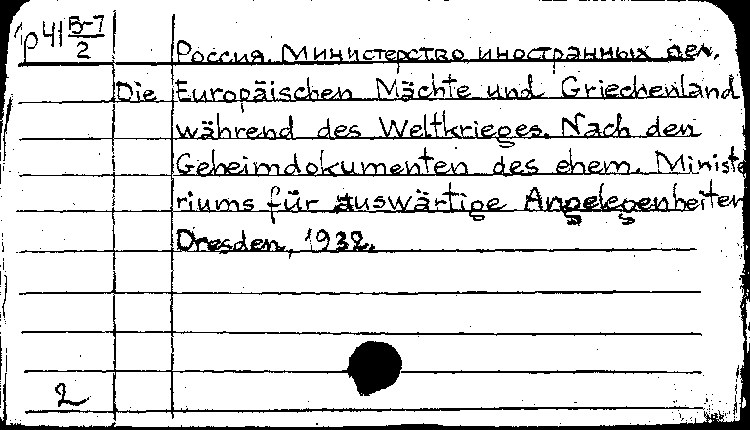 р41 5-7/2
Россия. Министерство иностранных дел.
Die Europäischen Mächte und Griechenland
während des Weltkrieges. Nach den
Geheimdokumenten des ehem. Ministe
riums für auswärtige Angelegenheiten
Dresden, 1932.
2